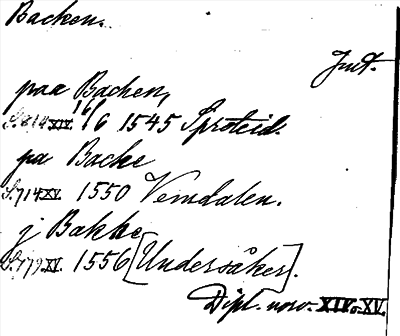 Backen.
Jmt.
paa Backen,
S. 814 XIV. 16/6 1545 Sproteid.
pa Backe
S. 714 XV. 1550 Vemdalen.
j Bakke
S. 179. XV. 1556 [Undersåker].
Dipl. norv. XIV. XV.